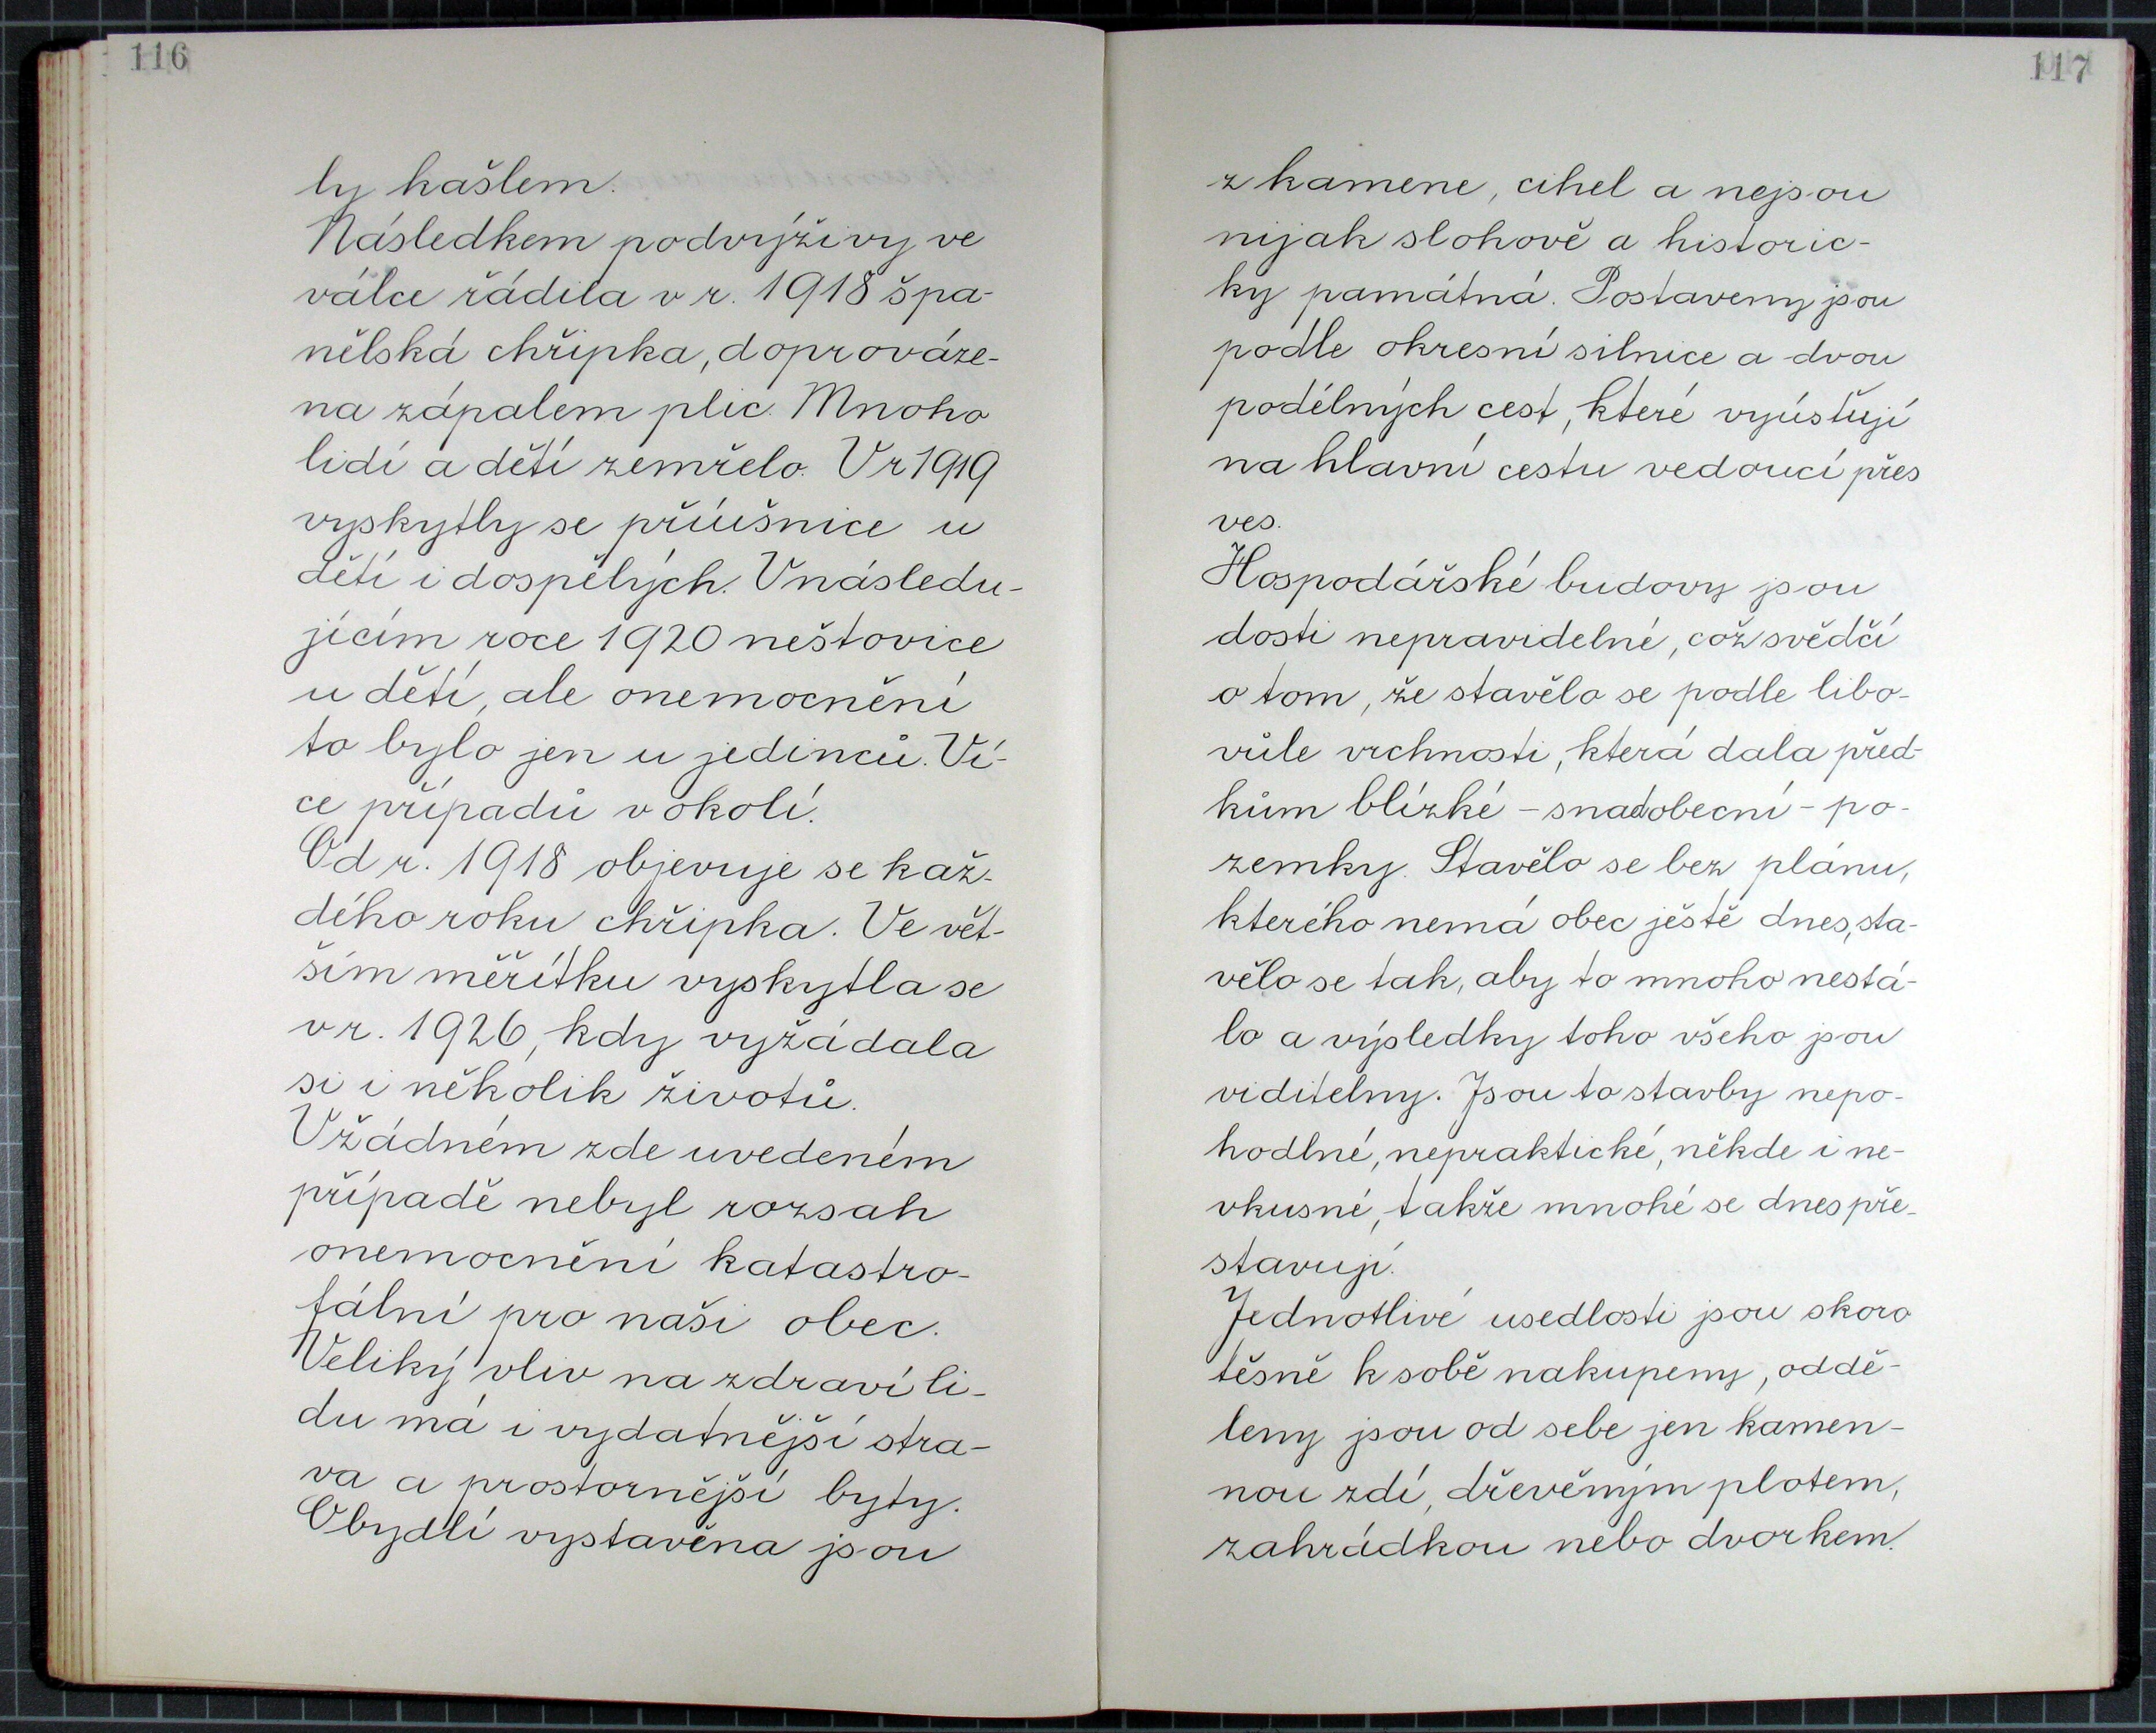 116
ly kašlem.
Následkem podvýživy ve
válce řádila v r. 1918 špa-
nělská chřipka, doprováze-
na zápalem plic. Mnoho
lidí a dětí zemřelo. V r 1919
vyskytly se příušnice u
dětí i dospělých. V následu-
jícím roce 1920 neštovice
u dětí, ale onemocnění
to bylo jen u jedinců. Ví-
ce případů v okolí.
Od r. 1918 objevuje se kaž-
dého roku chřipka. Ve vět-
ším měřítku vyskytla se
v r. 1926, kdy vyžádala
si i několik životů.
V žádném zde uvedeném
případě nebyl rozsah
onemocnění katastro-
fální pro naši obec.
Veliký vliv na zdraví li-
du má i vydatnější stra-
va a prostornější byty.
Obydlí vystavěna jsou
117
z kamene, cihel a nejsou
nijak slohově a historic-
ky památná. Postaveny jsou
podle okresní silnice a dvou
podélných cest, které vyúsťují
na hlavní cestu vedoucí přes
ves.
Hospodářské budovy jsou
dosti nepravidelné, což svědčí
o tom, že stavělo se podle libo-
vůle vrchnosti, která dala před-
kům blízké - snad obecní - po-
zemky. Stavělo se bez plánu,
kterého nemá obec ještě dnes, sta-
vělo se tak, aby to mnoho nestá-
lo a výsledky toho všeho jsou
viditelny. Jsou to stavby nepo-
hodlné, nepraktické, někde i ne-
vkusné, takže mnohé se dnes pře-
stavují.
Jednotlivé usedlosti jsou skoro
těsně k sobě nakupeny, oddě-
leny jsou od sebe jen kamen-
nou zdí, dřevěným plotem,
zahrádkou nebo dvorkem.